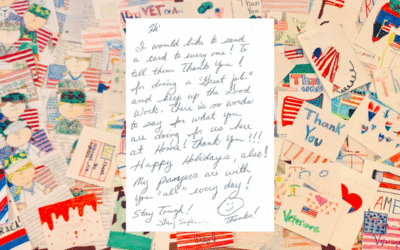 Hi
I would like to send
a card to every one! To
tell them Thank You!
For doing a "Great job"
and keep up the Good
Work. There is no words
to say for what you
are doing for us here
at Home! Thank You!!!
Happy Holidays, also!
My prayers are with
You "all" every day!
Stay Tough!
Stay Safe
Thanks!
Thank
You
Thank
You
Veterans